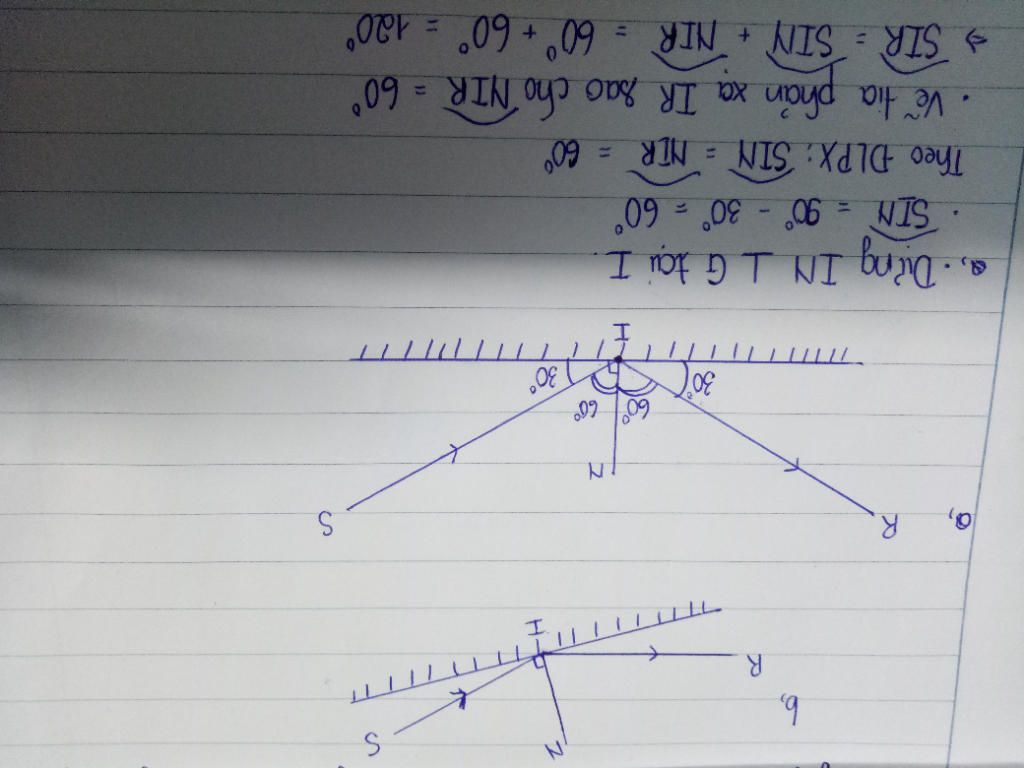 N S
b,
R
I
a, R S
N
60° 60°
30° 30°
I
a, · Dựng IN ⊥ G tại I.
· SIN = 90° - 30° = 60°
Theo ĐLPX: SIN = NIR = 60°
· Vẽ tia phản xạ IR sao cho NIR = 60°
⇒ SIR = SIN + NIR = 60° + 60° = 120°